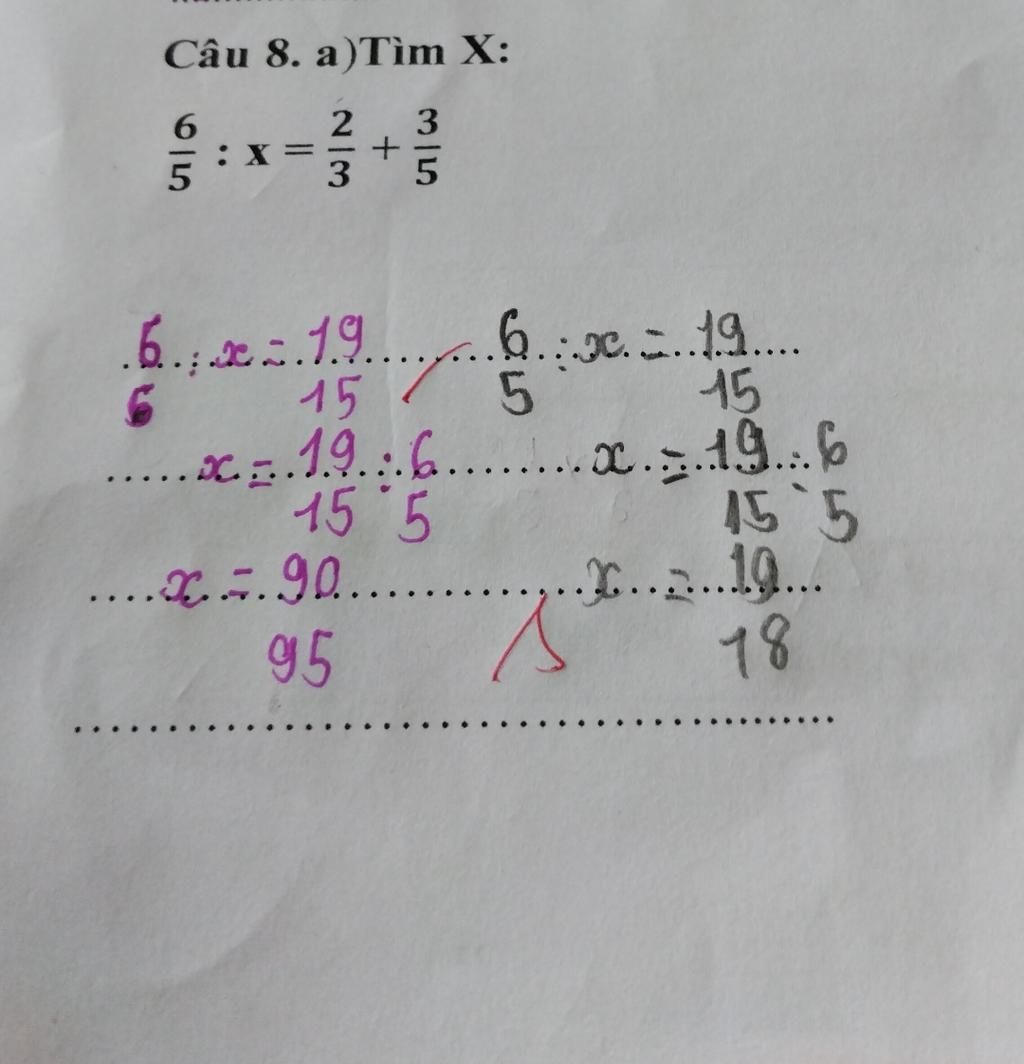 Câu 8. a)Tìm X:
6/5 : x = 2/3 + 3/5
6/5 : x = 19/15
x = 19/15 : 6/5
x = 90/95
6/5 : x = 19/15
x = 19/15 : 6/5
x = 19/18